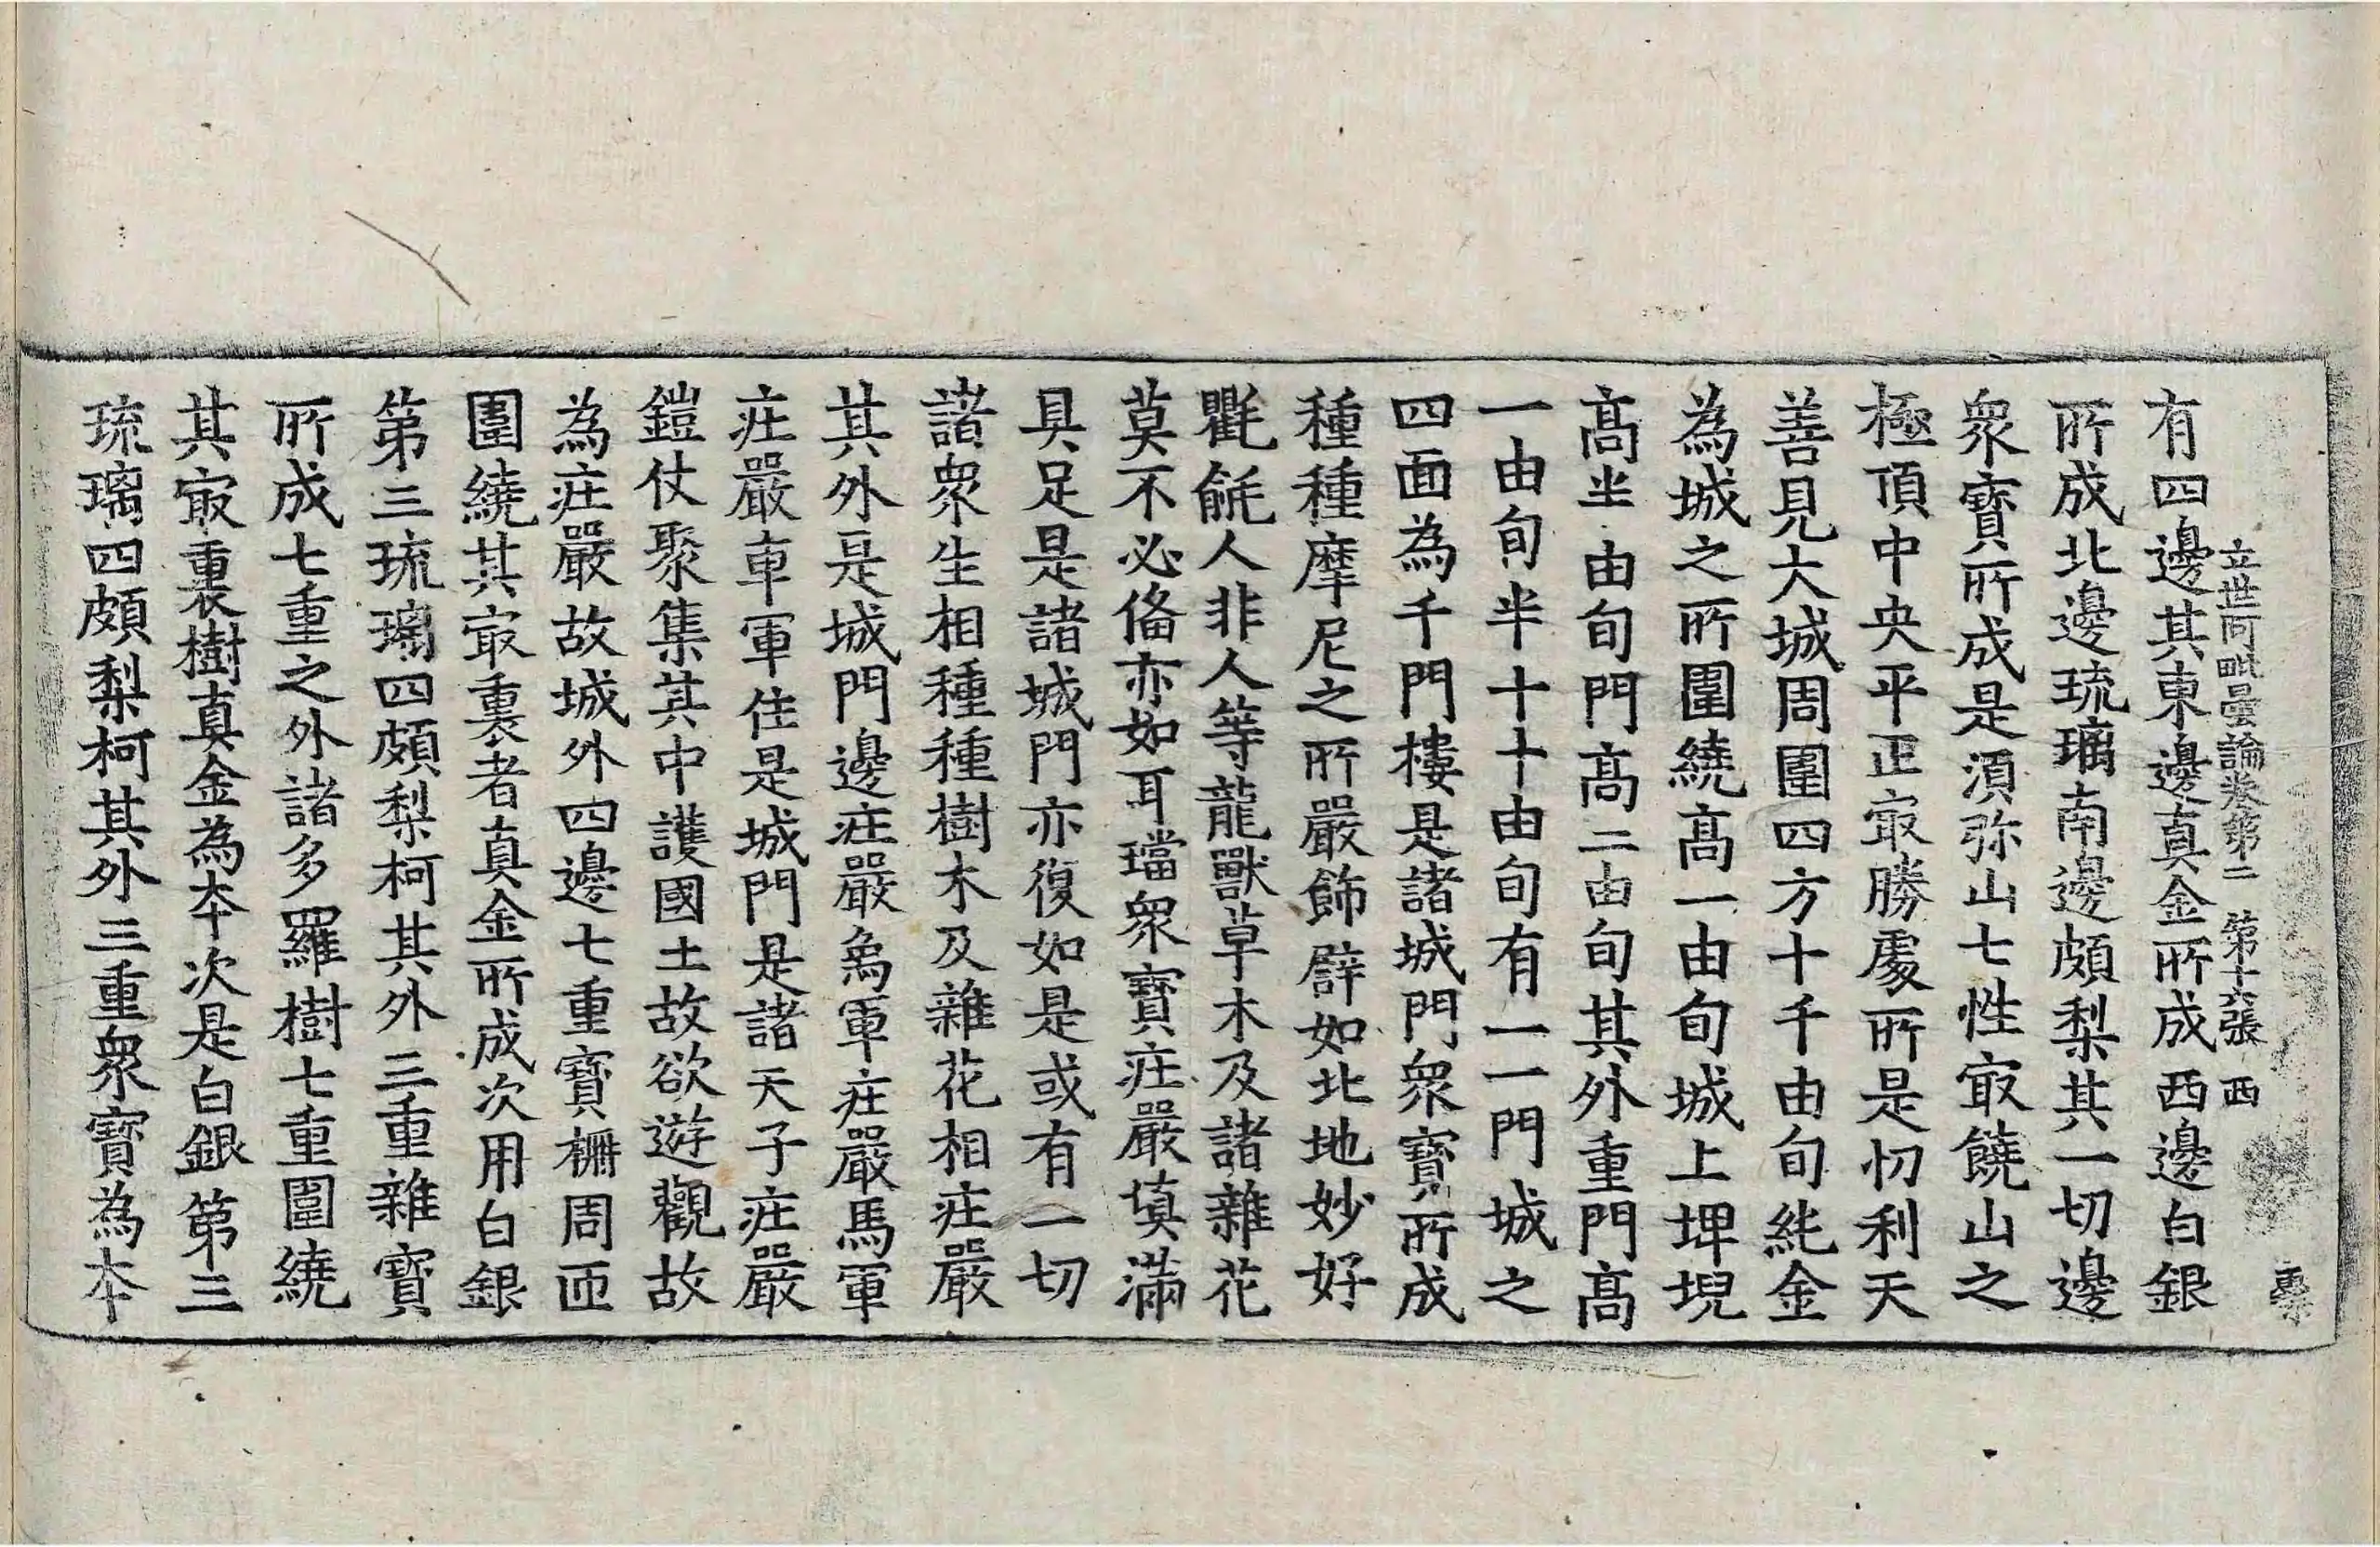 立世阿毗曇論卷第二 第十六張 西
有四邊其東邊真金所成西邊白銀
所成北邊琉璃南邊頗梨其一切邊
衆寶所成是湏弥山七性㝡饒山之
極頂中央平正㝡勝處所是忉利天
善見大城周圍四方十千由旬純金
為城之所圍繞髙一由旬城上埤堄
髙半由旬門髙二由旬其外重門髙
一由旬半十十由旬有一一門城之
四面為千門樓是諸城門衆寶所成
種種摩尼之所嚴飾辟如北地妙好
氍毹人非人等龍獸草木及諸雜花
莫不必俻亦如耳璫衆寶莊嚴填滿
具足是諸城門亦復如是或有一切
諸衆生相種種樹木及雜花相莊嚴
其外是城門邊莊嚴象軍莊嚴馬軍
莊嚴車軍住是城門是諸天子莊嚴
鎧仗聚集其中護國土故欲遊觀故
為莊嚴故城外四邊七重寶柵周匝
圍繞其㝡裏者真金所成次用白銀
第三琉璃四頗梨柯其外三重雜寶
所成七重之外諸多羅樹七重圍繞
其㝡裏樹真金為本次是白銀第三
琉璃四頗梨柯其外三重衆寶為本